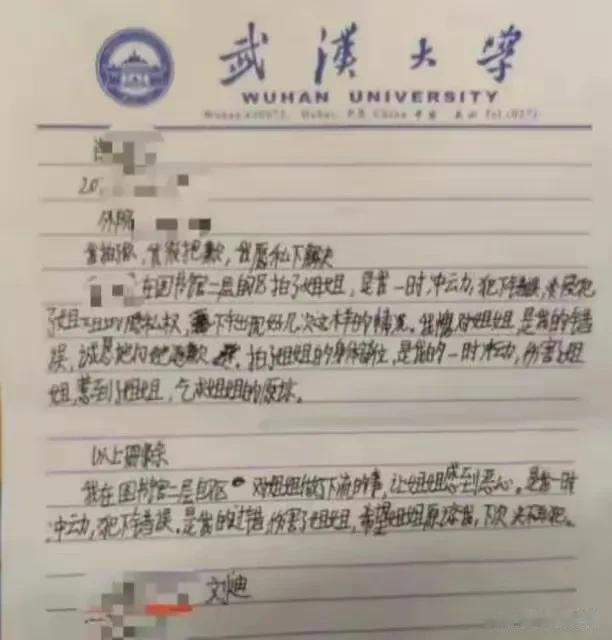 武漢大学
WUHAN UNIVERSITY
Wuhan 430072, Hubei, P.R. China 中国 武汉 Tel.(027)
20
外院
我很抱歉,我愿私下解决
在图书馆二层B区拍了姐姐,是我一时冲动,犯下错误,侵犯
了姐姐的隐私权,出现好几次这样的情况。我愧对姐姐,是我的错
误,诚恳地向她道歉。拍了姐姐的身体部位,是我的一时冲动,伤害了姐
姐,惹到了姐姐,气求姐姐的原谅。
以上删除
我在图书馆二层B区 对姐姐做了下流的事,让姐姐感到恶心。是我一时
冲动,犯下错误。是我的过错伤害了姐姐,希望姐姐原谅我,下次决不再犯。